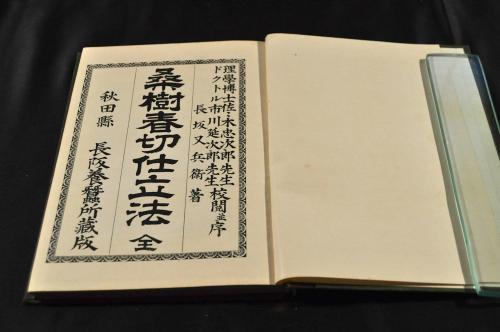 理學博士佐々木忠次郎先生
ドクトル市川延次郎先生
校閲並序
長坂又兵衛著
桑樹春切仕立法 全
秋田縣 長阪養蠶所藏版